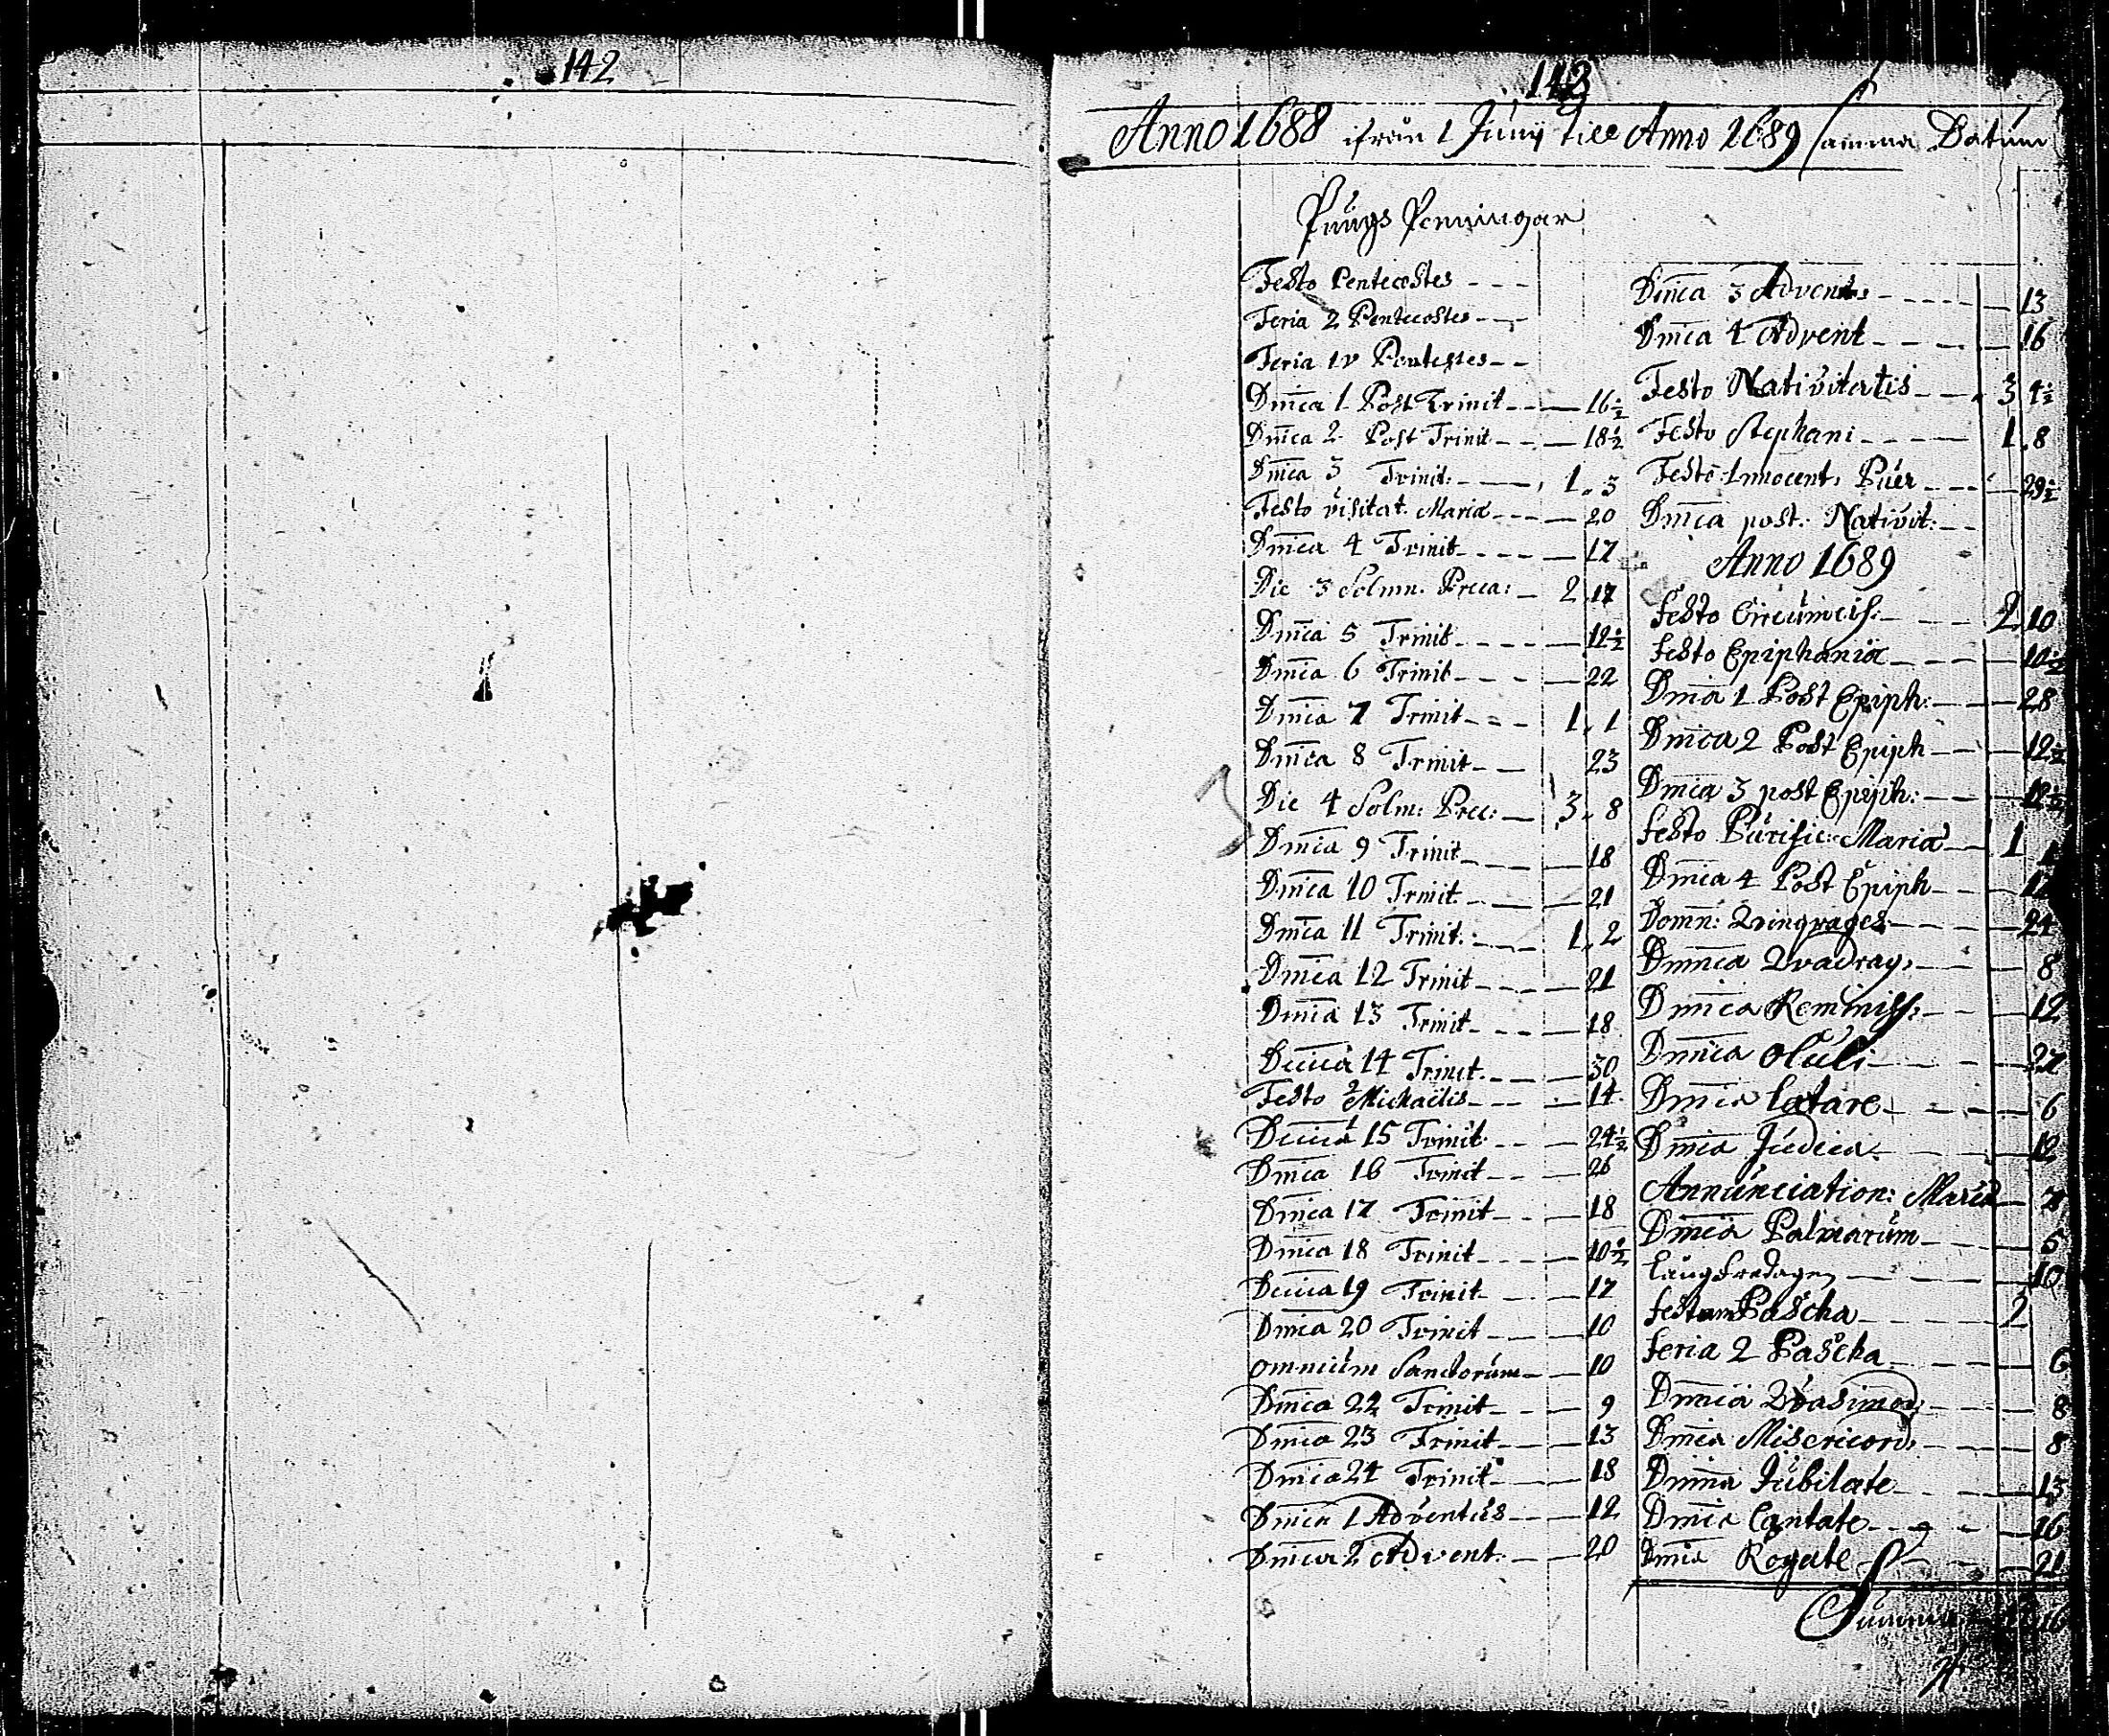 142
143
Anno 1688 ifrån 1 Junij till Anno 1689 samma Datum
Pungs Penningar
Festo Pentecostes
Feria 2 Pentecostes
Feria
Dnīca 1 Post Trinit 16½
Dnīca 2 Post Trinit 18½
Dnīca 3 Trinit: 1. 3
Festo visitat. Mariæ 20
Dnīca 4 Trinit 17
Die 3 Solmn. Preca: 2. 17
Dnīca 5 Trinit 12½
Dnīca 6 Trinit 22
Dnīca 7 Trinit 1. 1
Dnīca 8 Trinit 23
Die 4 Solm: Prec: 3. 8
Dnīca 9 Trinit 18
Dnīca 10 Trinit 21
Dnīca 11 Trinit: 1. 2
Dnīca 12 Trinit 21
Dnīca 13 Trinit 18
Dnīca 14 Trinit. 30
Festo Michaëlis 14
Dnīca 15 Trinit 24½
Dnīca 16 Trinit 26
Dnīca 17 Trinit 18
Dnīca 18 Trinit 10½
Dnīca 19 Trinit 17
Dnīca 20 Trinit 10
omnium Sanctorum 10
Dnīca 22 Trinit 9
Dnīca 23 Trinit 13
Dnīca 24 Trinit 18
Dnīca 1 Adventus 12
Dnīca 2 Advent. 20
Dnīca 3 Advent 13
Dnīca 4 Advent 16
Festo Nativitatis 3 4½
Festo Stephani 1. 8
Festo Innocent. Puer 29½
Dnīca post. Nativit:
Anno 1689
Festo Circumcis: 2. 10
Festo Epiphaniæ 10½
Dnīca 1 Post Epiph: 28
Dnīca 2 Post Epiph 12½
Dnīca 3 post Epiph: 12½
Festo Purific: Mariæ 1
Dnīca 4 Post Epiph
Domn: Qvinqvages 24
Dnīca Qvadrag: 8
Dnīca Reminiss: 12
Dnīca Oculi 27
Dnīca Lætare 6
Dnīca Judica 12
Annunciation: Mariæ
Dnīca Palmarum 5
Långfredagen 10
Festum Pascha 2
Feria 2 Pascha 6
Dnīca Qvasimod: 8
Dnīca Misericord: 8
Dnīca Jubilate 13
Dnīca Cantate 16
Dnīca Rogate 21
Summa